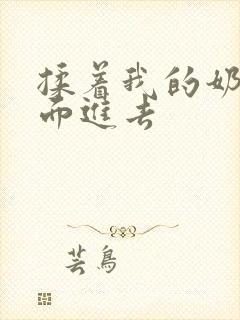 揉着我的奶
而进去
芸鸟